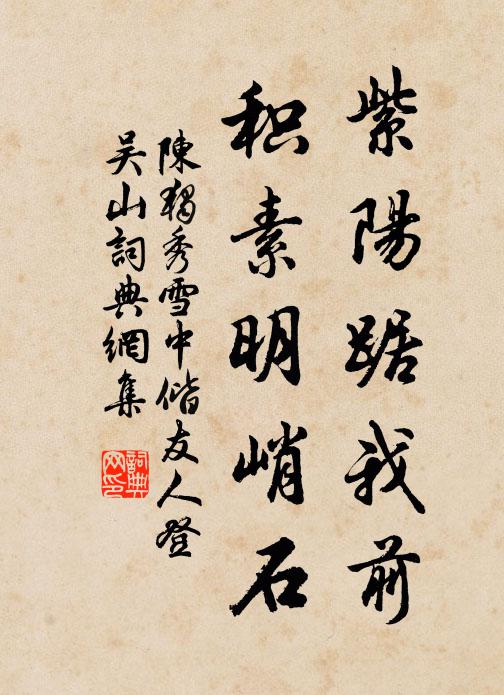 紫陽踞我前
积素明峭石
陳獨秀雪中偕友人登
吴山詞典網集
詞典
网印